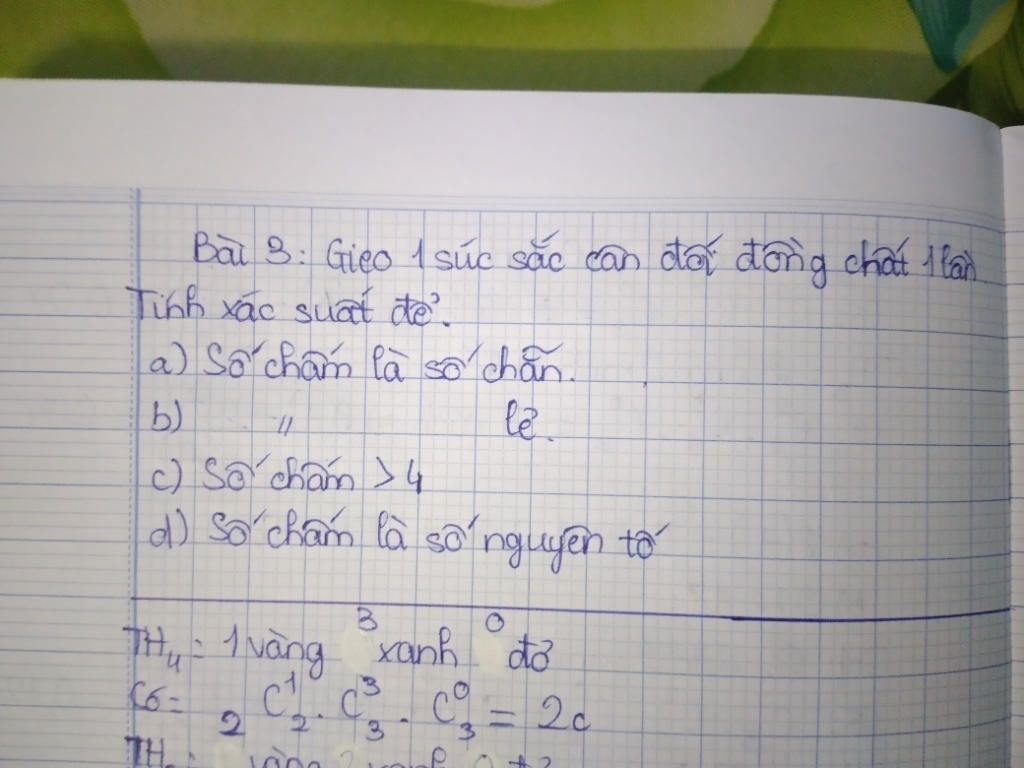 Bài 3: Gieo 1 súc sắc cân đối đồng chất 1 lần
Tính xác suất để.
a) Số chấm là số chẵn.
b) " lẻ.
c) Số chấm > 4
d) Số chấm là số nguyên tố
TH₄ = 1 vàng 3 xanh 0 đỏ
Có = 2 C¹₂ . C³₃ . C⁰₃ = 2c